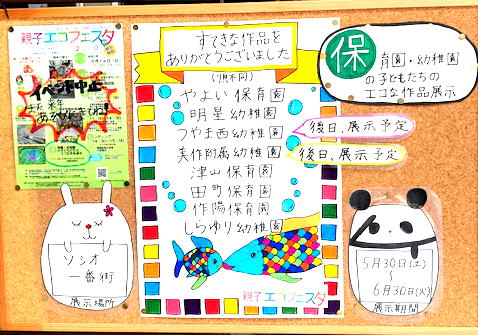 親子エコフェスタ
イベント中止
また来年
あそびにきてね!
すてきな作品を
ありがとうございました
(順不同)
やよい保育園
明星幼稚園
つやま西幼稚園
後日、展示予定
美作附属幼稚園
後日、展示予定
津山保育園
田町保育園
作陽保育園
しらゆり幼稚園
親子エコフェスタ
保育園・幼稚園
の子どもたちの
エコな作品展示
ソシオ
一番街
展示場所
5月30日(土)
~
6月30日(火)
展示期間